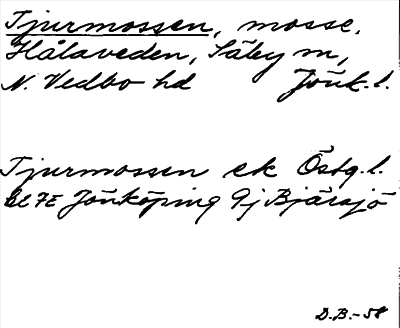 Tjurmossen, mosse,
Hålaveden, Säby m,
N. Vedbo hd Jönk. l.
Tjurmossen ek Östg. l.
bl 7E Jönköping 9j Bjärsjö
D.B.-58